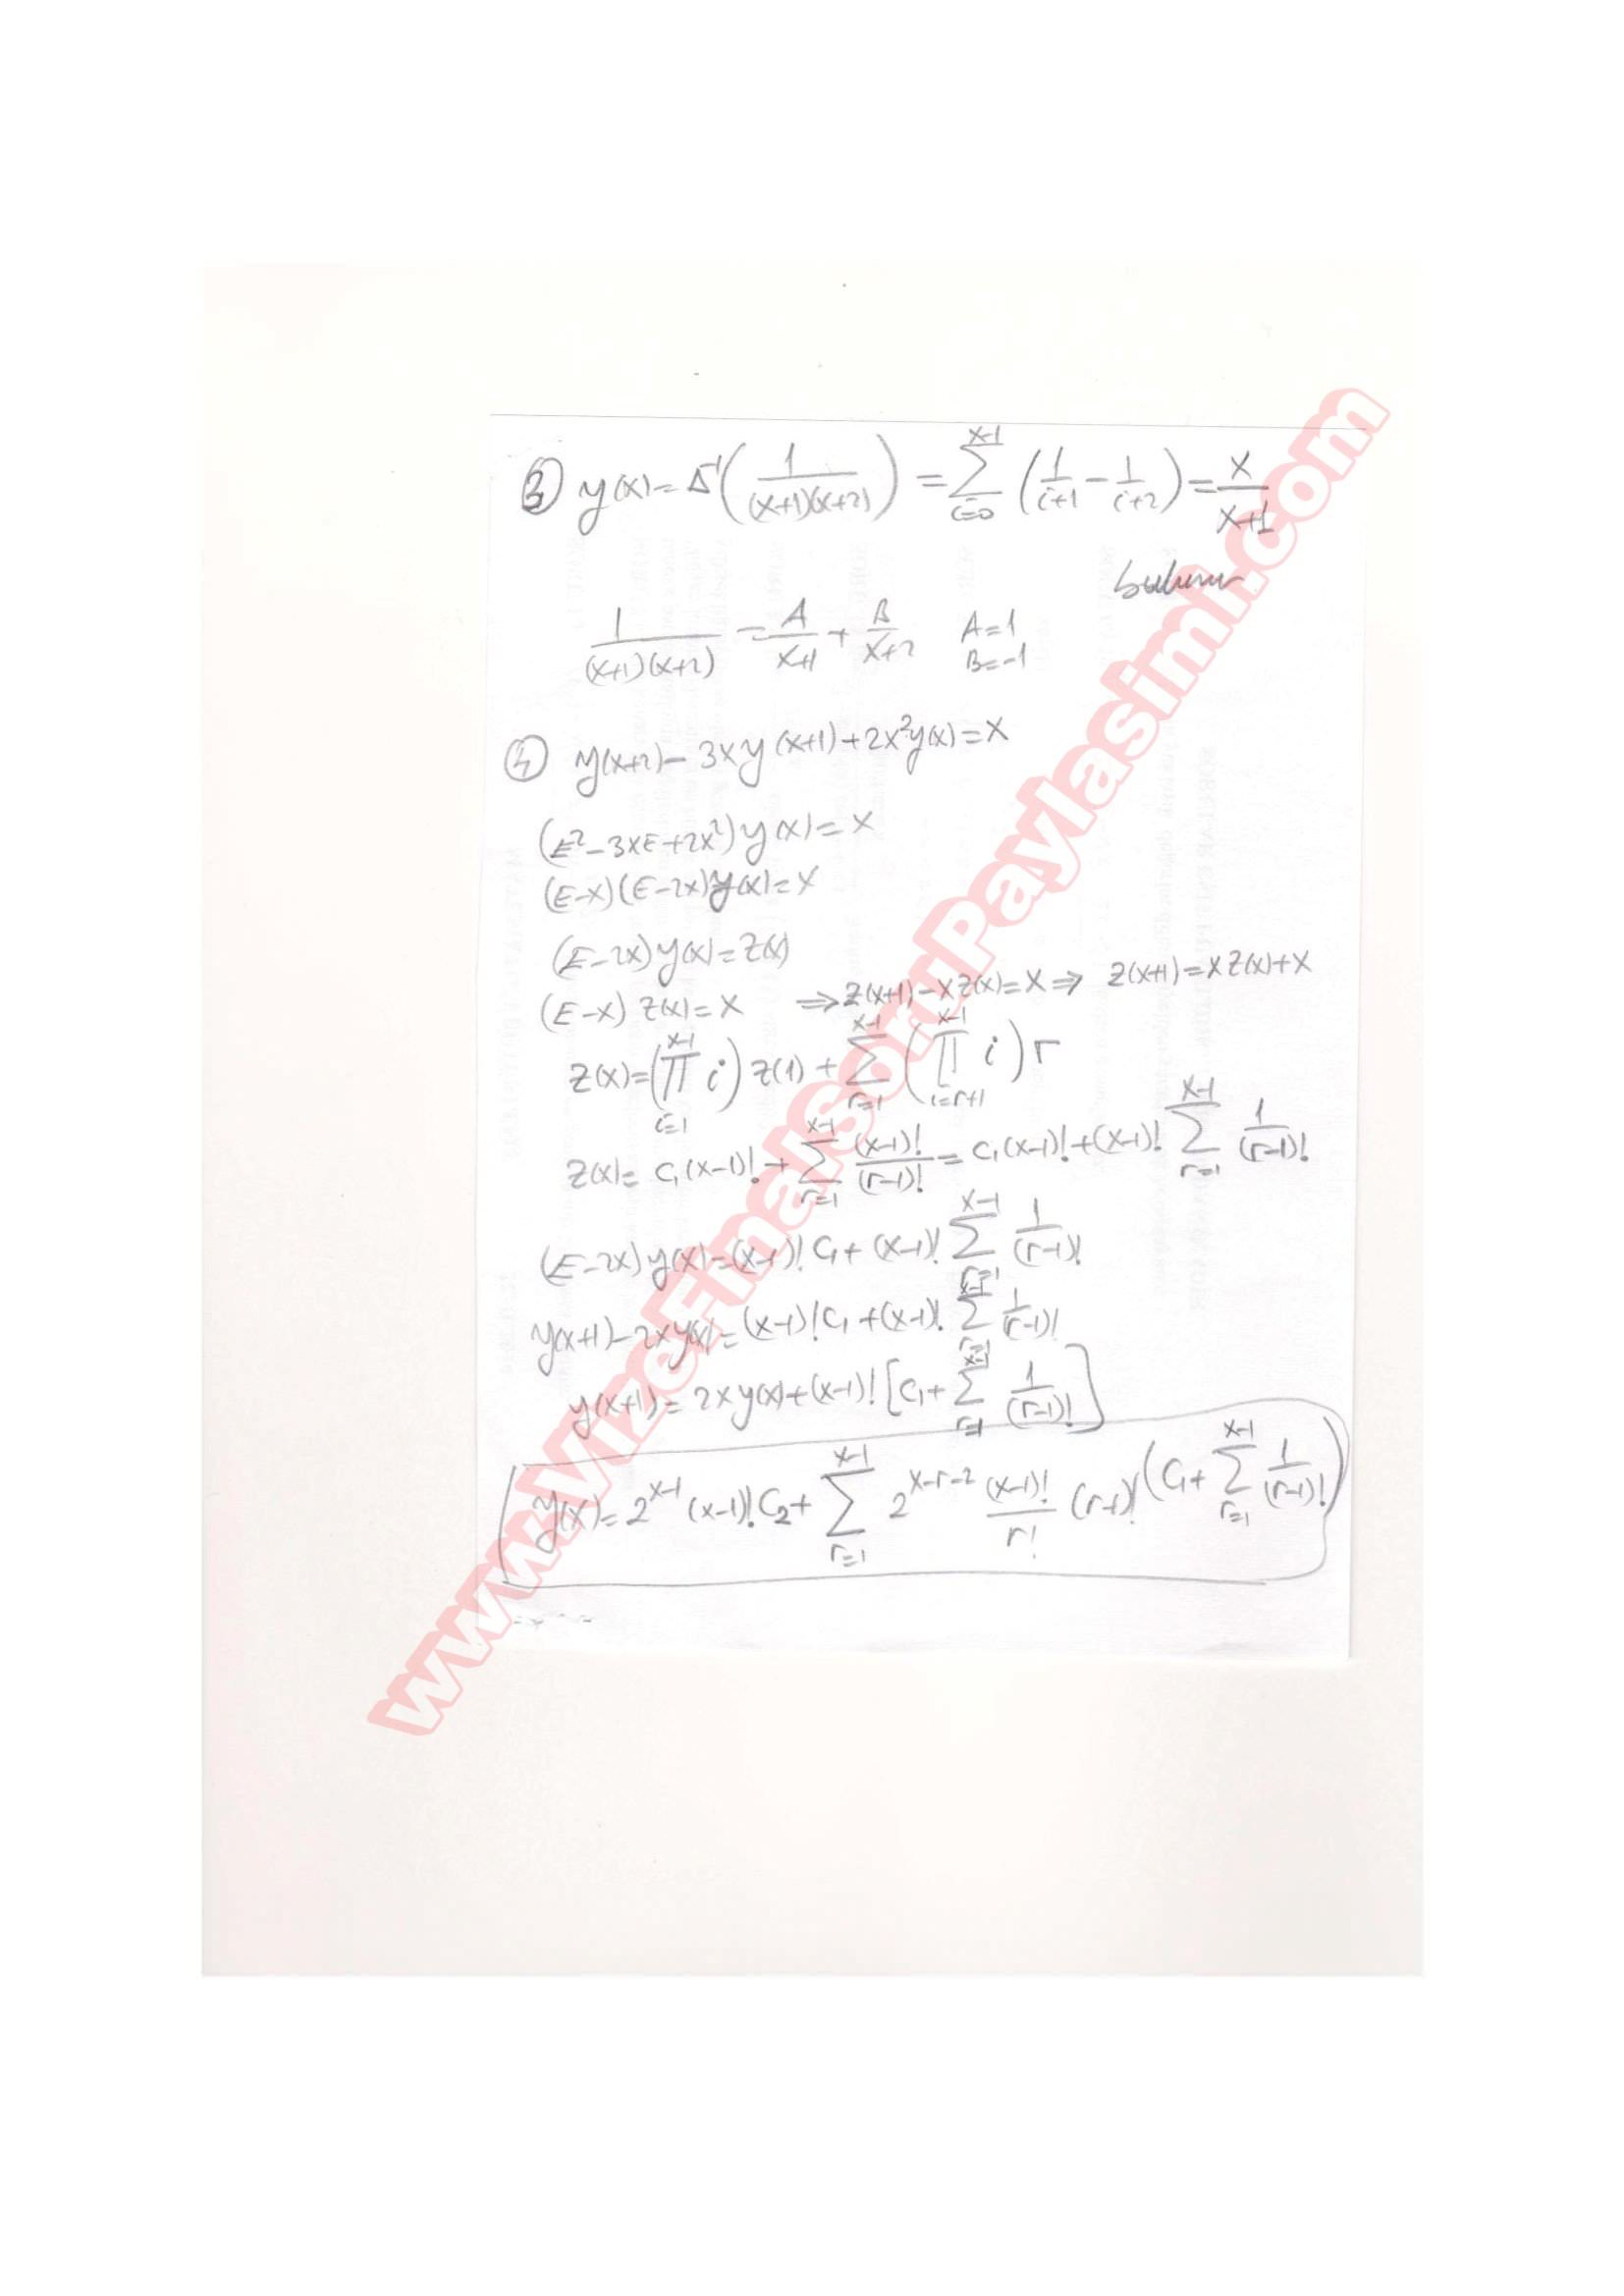 ③ y(x) = Δ⁻¹(1/((x+1)(x+2))) = Σ_{i=0}^{x-1} (1/(i+1) - 1/(i+2)) = x/(x+1)
bulunur
1/((x+1)(x+2)) = A/(x+1) + B/(x+2)   A=1
B=-1
④ y(x+2) - 3xy(x+1) + 2x²y(x) = x
(E² - 3xE + 2x²) y(x) = x
(E-x)(E-2x)y(x) = x
(E-2x)y(x) = z(x)
(E-x) z(x) = x ⇒ z(x+1) - xz(x) = x ⇒ z(x+1) = xz(x)+x
z(x) = (∏_{i=1}^{x-1} i) z(1) + Σ_{r=1}^{x-1} (∏_{i=r+1}^{x-1} i) r
z(x) = c₁(x-1)! + Σ_{r=1}^{x-1} (x-1)!/(r-1)! = c₁(x-1)! + (x-1)! Σ_{r=1}^{x-1} 1/(r-1)!
(E-2x)y(x) = (x-1)! c₁ + (x-1)! Σ_{r=1}^{x-1} 1/(r-1)!
y(x+1) - 2xy(x) = (x-1)! c₁ + (x-1)! Σ_{r=1}^{x-1} 1/(r-1)!
y(x+1) = 2xy(x) + (x-1)! [c₁ + Σ_{r=1}^{x-1} 1/(r-1)!]
y(x) = 2^{x-1} (x-1)! c₂ + Σ_{r=1}^{x-1} 2^{x-r-2} (x-1)!/r! (r-1)! (c₁ + Σ_{r=1}^{x-1} 1/(r-1)!)
www.VizeFinalSoruPaylasimi.com